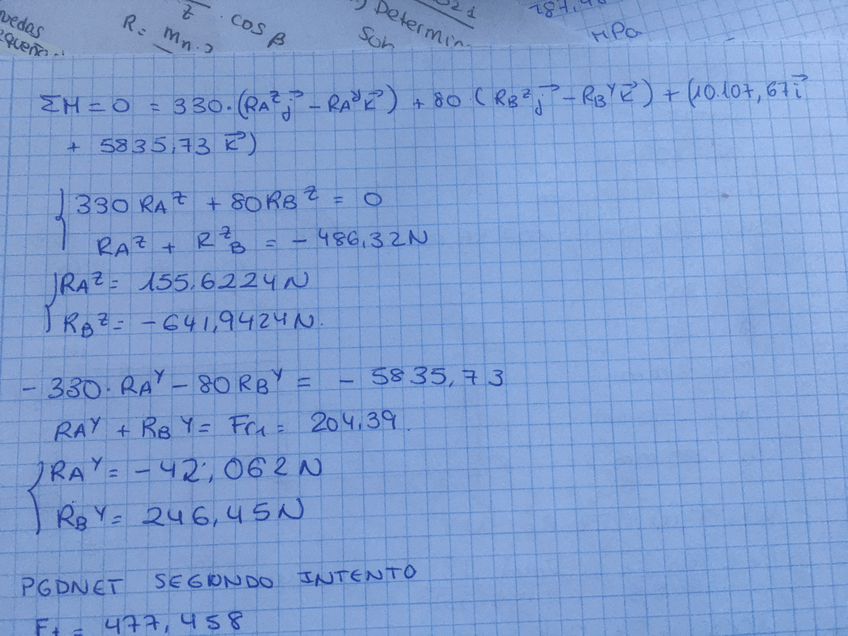 uedas
R = mn.z / z · cos β
Determin.
Son
MPa
ΣM = 0 = 330·(RA^z j⃗ - RA^y k⃗) + 80 (RB^z j⃗ - RB^y k⃗) + (10.107,67 i⃗
+ 5835,73 k⃗)
330 RA^z + 80RB^z = 0
RA^z + R^z B = - 486,32N
RA^z = 155,6224N
RB^z = -641,9424N.
- 330· RA^y - 80RB^y = - 5835,73
RA^y + RB^y = Fr1 = 204,39.
RA^y = -42,062N
RB^y = 246,45N
PGDNET SEGUNDO INTENTO
Ft = 477,458